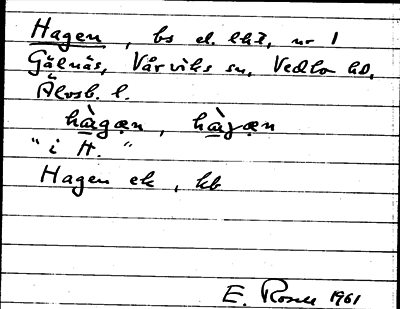 Hagen, bs el. lht, nr 1
Gälnäs, Vårviks sn, Vedbo hd,
Älvsb. l.
hàgæn, hàgæn
"i H."
Hagen ek, kb
E. Rosell 1961